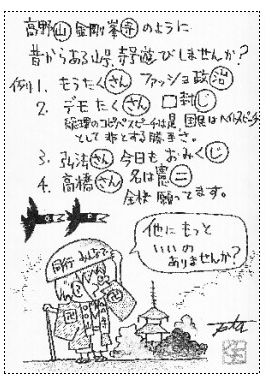 高野山 金剛峯寺のように
昔からある山号、寺号遊びしませんか?
例) 1. もうたくさん ファッショ政治
2. デモ たくさん 口封じ
総理のコピペスピーチは是、国民はヘイトスピーチ
として非とする勝手さ。
3. 弘法さん 今日も おみくじ
4. 高橋さん 名は憲二
全快 願ってます。
同行みんなで
他にもっと
いいの
ありませんか?